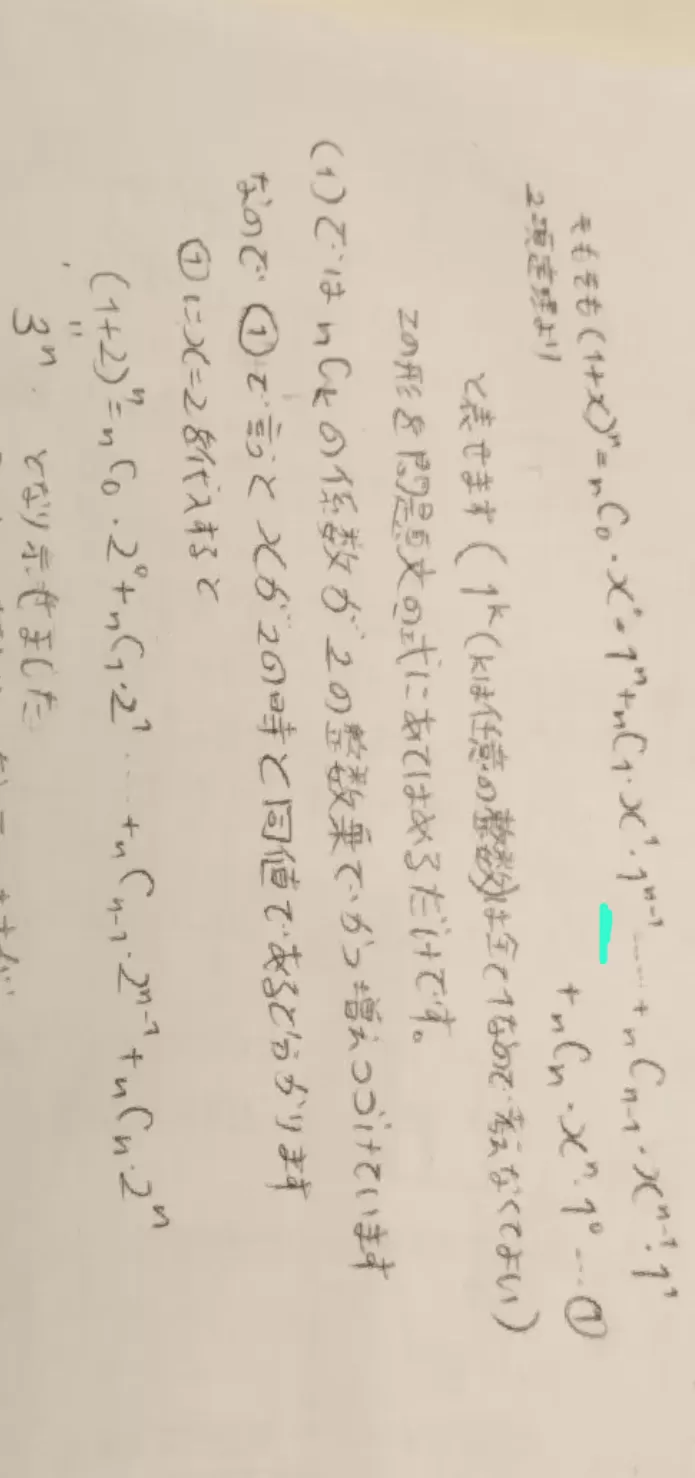 そもそも (1+x)ⁿ = ₙC₀・x⁰・1ⁿ + ₙC₁・x¹・1ⁿ⁻¹ …… + ₙCₙ₋₁・xⁿ⁻¹・1¹
2項定理より
+ ₙCₙ・xⁿ・1⁰ … ①
と表せます (1ᵏ(kは任意の整数)は全て1なので考えなくてよい)
この形を問題文の式にあてはめるだけです。
(1)では ₙCₖの係数が2の整数乗でかつ増えつづけています
なので ①で言うと xが2の時と同値であると分かります
①にx=2を代入すると
(1+2)ⁿ = ₙC₀・2⁰ + ₙC₁・2¹ …… + ₙCₙ₋₁・2ⁿ⁻¹ + ₙCₙ・2ⁿ
〃
3ⁿ. となり示せました